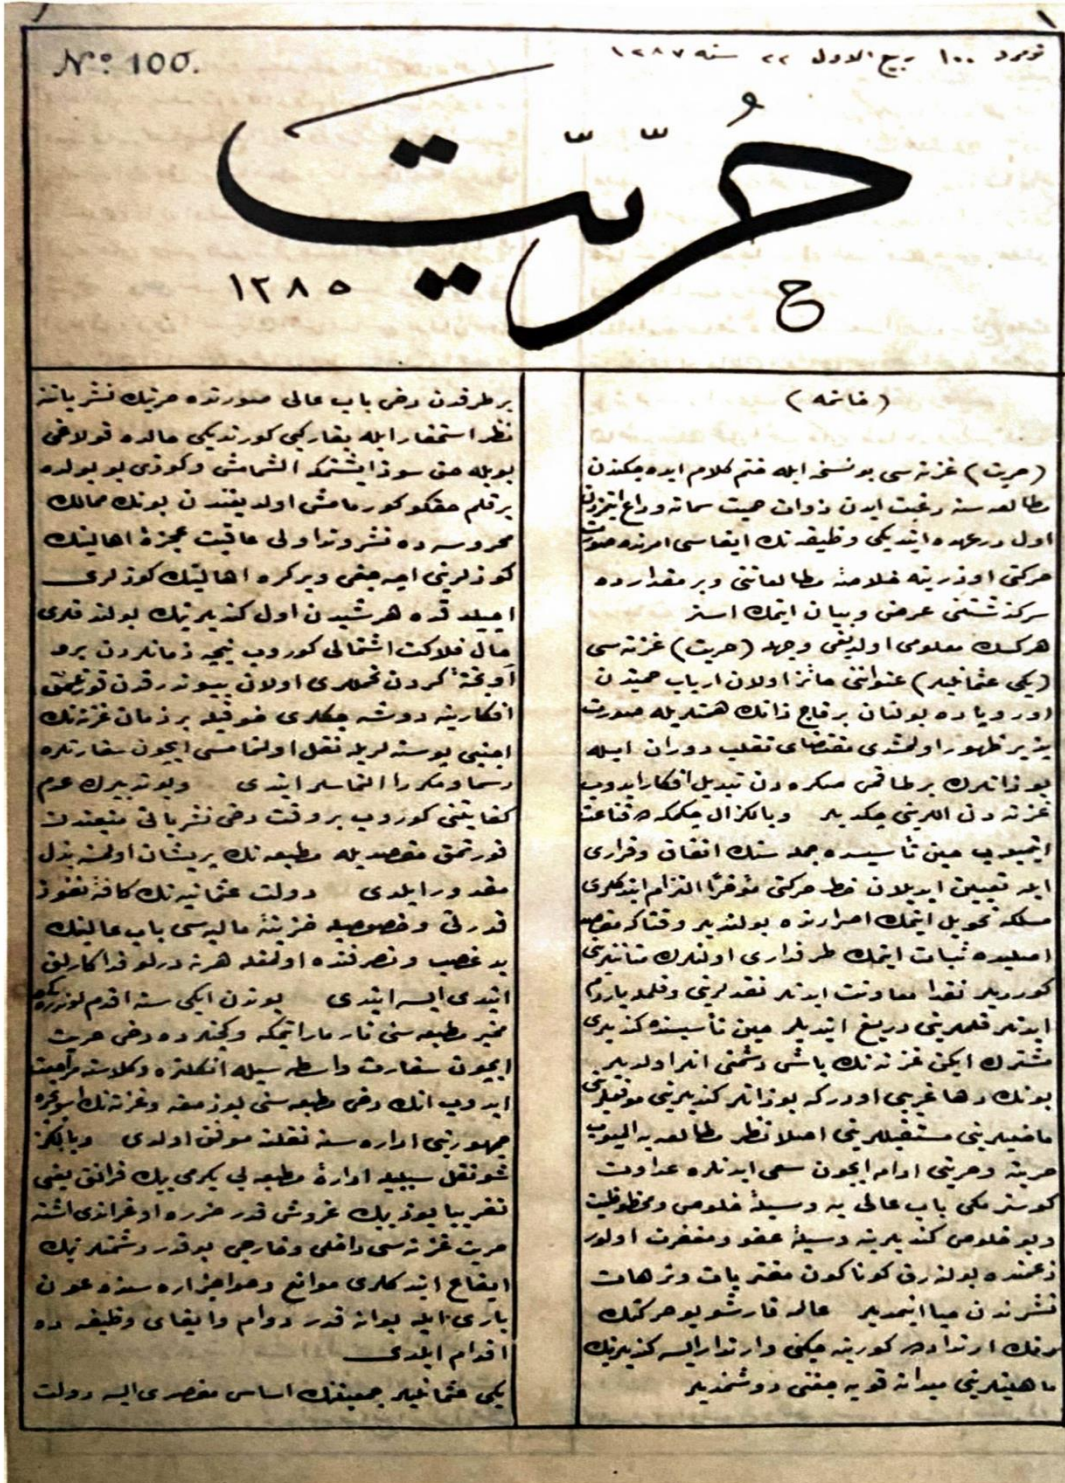 ١
نومرو ١٠٠ ربيع الاول ٢٢ سنه ١٢٨٧
Nº 100.
حُرّيّت
ح
١٢٨٥
(خاتمه)
(حريت) غزته سى بو نسخه ايله ختم كلام ايده جكندن
مطالعه سنه رغبت ايدن ذوات حميت سماته وداع ايتمزدن
اول درعهده ايتديكى وظيفه نك ايفاسى امرنده صورت
حركتى اوزرينه خلاصۀ مطالعاتنى وبر مقدارده
سركذشتنى عرض وبيان ايتمك استر
هركسك معلومى اولديغى وجهله (حريت) غزته سى
(يكى عثمانليلر) عنواننى حائز اولان ارباب حميتدن
اوروپاده بولنان بر قاچ ذاتك همتلريله صورت
پذير ظهور اولمشدى مقتضاى تقلب دوران ايله
بو ذاتلرك بر طاقمى صكره دن تبديل افكار ايدوب
غزته دن اللرينى چكديلر ويالكز ال چكمكه قناعت
ايتميوب حين تأسيسده جمله سنك اتفاق وقرارى
ايله تعيين ايديلان خط حركتى مؤخرًا التزام ايتدكلرى
مسلكه تحويل ايتمك اصرارنده بولنديلر وقتاكه مقصد
اصليده ثبات ايتمك طرفدارى اولنلرك متانتنى
كورديلر نقدا معاونت ايدنلر نقدلرينى وقلمله ياردم
ايدنلر قلملرينى دريغ ايتديلر حين تأسيسنده كنديلرى
مشترك ايكن غزته نك باشلى دشمنى انلر اولديلر
بونك دها غريبى اودركه بو ذاتلر كنديلرينى موقعلرينى
ماضيلرينى مستقبللرينى اصلا نظر مطالعه يه اليوب
حريته وحريتى ادامه ايچون سعى ايدنلره عداوت
كوسترمكى باب عالى يه وسيلۀ خلوص ومحظوظيت
وبو خلوصى كنديلرينه وسيلۀ عفو ومغفرت اولور
زعمنده بولنه رق كوناكون مفتريات وترهات
نشرندن حيا ايتمديلر عالمه قارشو بو حركتك
نه ارتداد كورينه جكنى وارتدار ايسه كنديلرينك
ماهيتلرينى ميدانه قويه جغنى دوشنمديلر
بر طرفدن دخى باب عالى صورتده حريتك نشرياتنه
نظر استحقار ايله باقار كبى كورنديكى حالده قولاغى
بويله حق سوز ايشتمكه الشمامش وكوزى بو يولده
بر قلم حقكو كورمامش اولديغندن بونك ممالك
محروسه ده نشر وتداولى عاقبت عجزۀ اهالينك
كوزلرينى اچه جغنى وبر كره اهالينك كوزلرى
اچيلدقده هر شيدن اول كنديلرينك بولندقلرى
حال فلاكت اشتمالى كوروب نيجه زمانلردن برو
آويختۀ كردن تحملرى اولان بيوندرقدن قورتلمق
افكارينه دوشه جكلرى خوفيله بر زمان غزته نك
اجنبى پوسته لريله نقل اولنمامسى ايچون سفارتلره
رسما ومكررا التماسلر ايتدى وبو تدبيرك عدم
كفايتنى كوروب بر وقت دخى نشرياتى منبعندن
قورتمق مقصديله مطبعه نك پريشان اولمسنه بذل
مقدور ايلدى دولت عثمانيه نك كافۀ نفوذ
قدرتى وخصوصيله خزينۀ ماليه سى باب عالينك
يد غصب وتصرفنده اولمغله هر نه درلو فداكارلق
ايتدى ايسه ايتدى بوندن ايكى سنه اقدم لوندره ده
مخبر مطبعه سنى تارمار ايتمكه وكچنلرده دخى حريت
ايچون سفارت واسطه سيله انكلتره وكلاسنه مراجعت
ايدوب انك دخى مطبعه سنى بوزمغه وغزته نك اسويچره
جمهوريتى اداره سنه نقلنه موفق اولدى ويالكز
شو نقل سببيله ادارۀ مطبعه يى يكرمى بيك فرانق يعنى
تقريبا يوز بيك غروش قدر ضرره اوغراتدى اشته
حريت غزته سى داخلى وخارجى بو قدر دشمنلرينك
ايقاع ايتدكلرى موانع وحواجز اره سنده عون
بارى ايله بو انه قدر دوام وايفاى وظيفه ده
اقدام ايلدى
يكى عثمانليلر جمعيتنك اساس مقصدى ايسه دولت